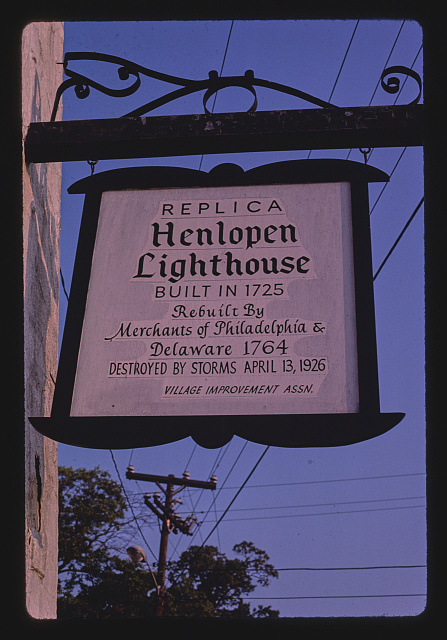 REPLICA
Henlopen
Lighthouse
BUILT IN 1725
Rebuilt By
Merchants of Philadelphia &
Delaware 1764
DESTROYED BY STORMS APRIL 13, 1926
VILLAGE IMPROVEMENT ASSN.